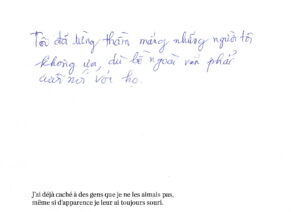 Tôi đã từng thầm mắng những người tôi
không ưa, dù bề ngoài vẫn phải
cười nói với họ.
J'ai déjà caché à des gens que je ne les aimais pas,
même si d'apparence je leur ai toujours souri.